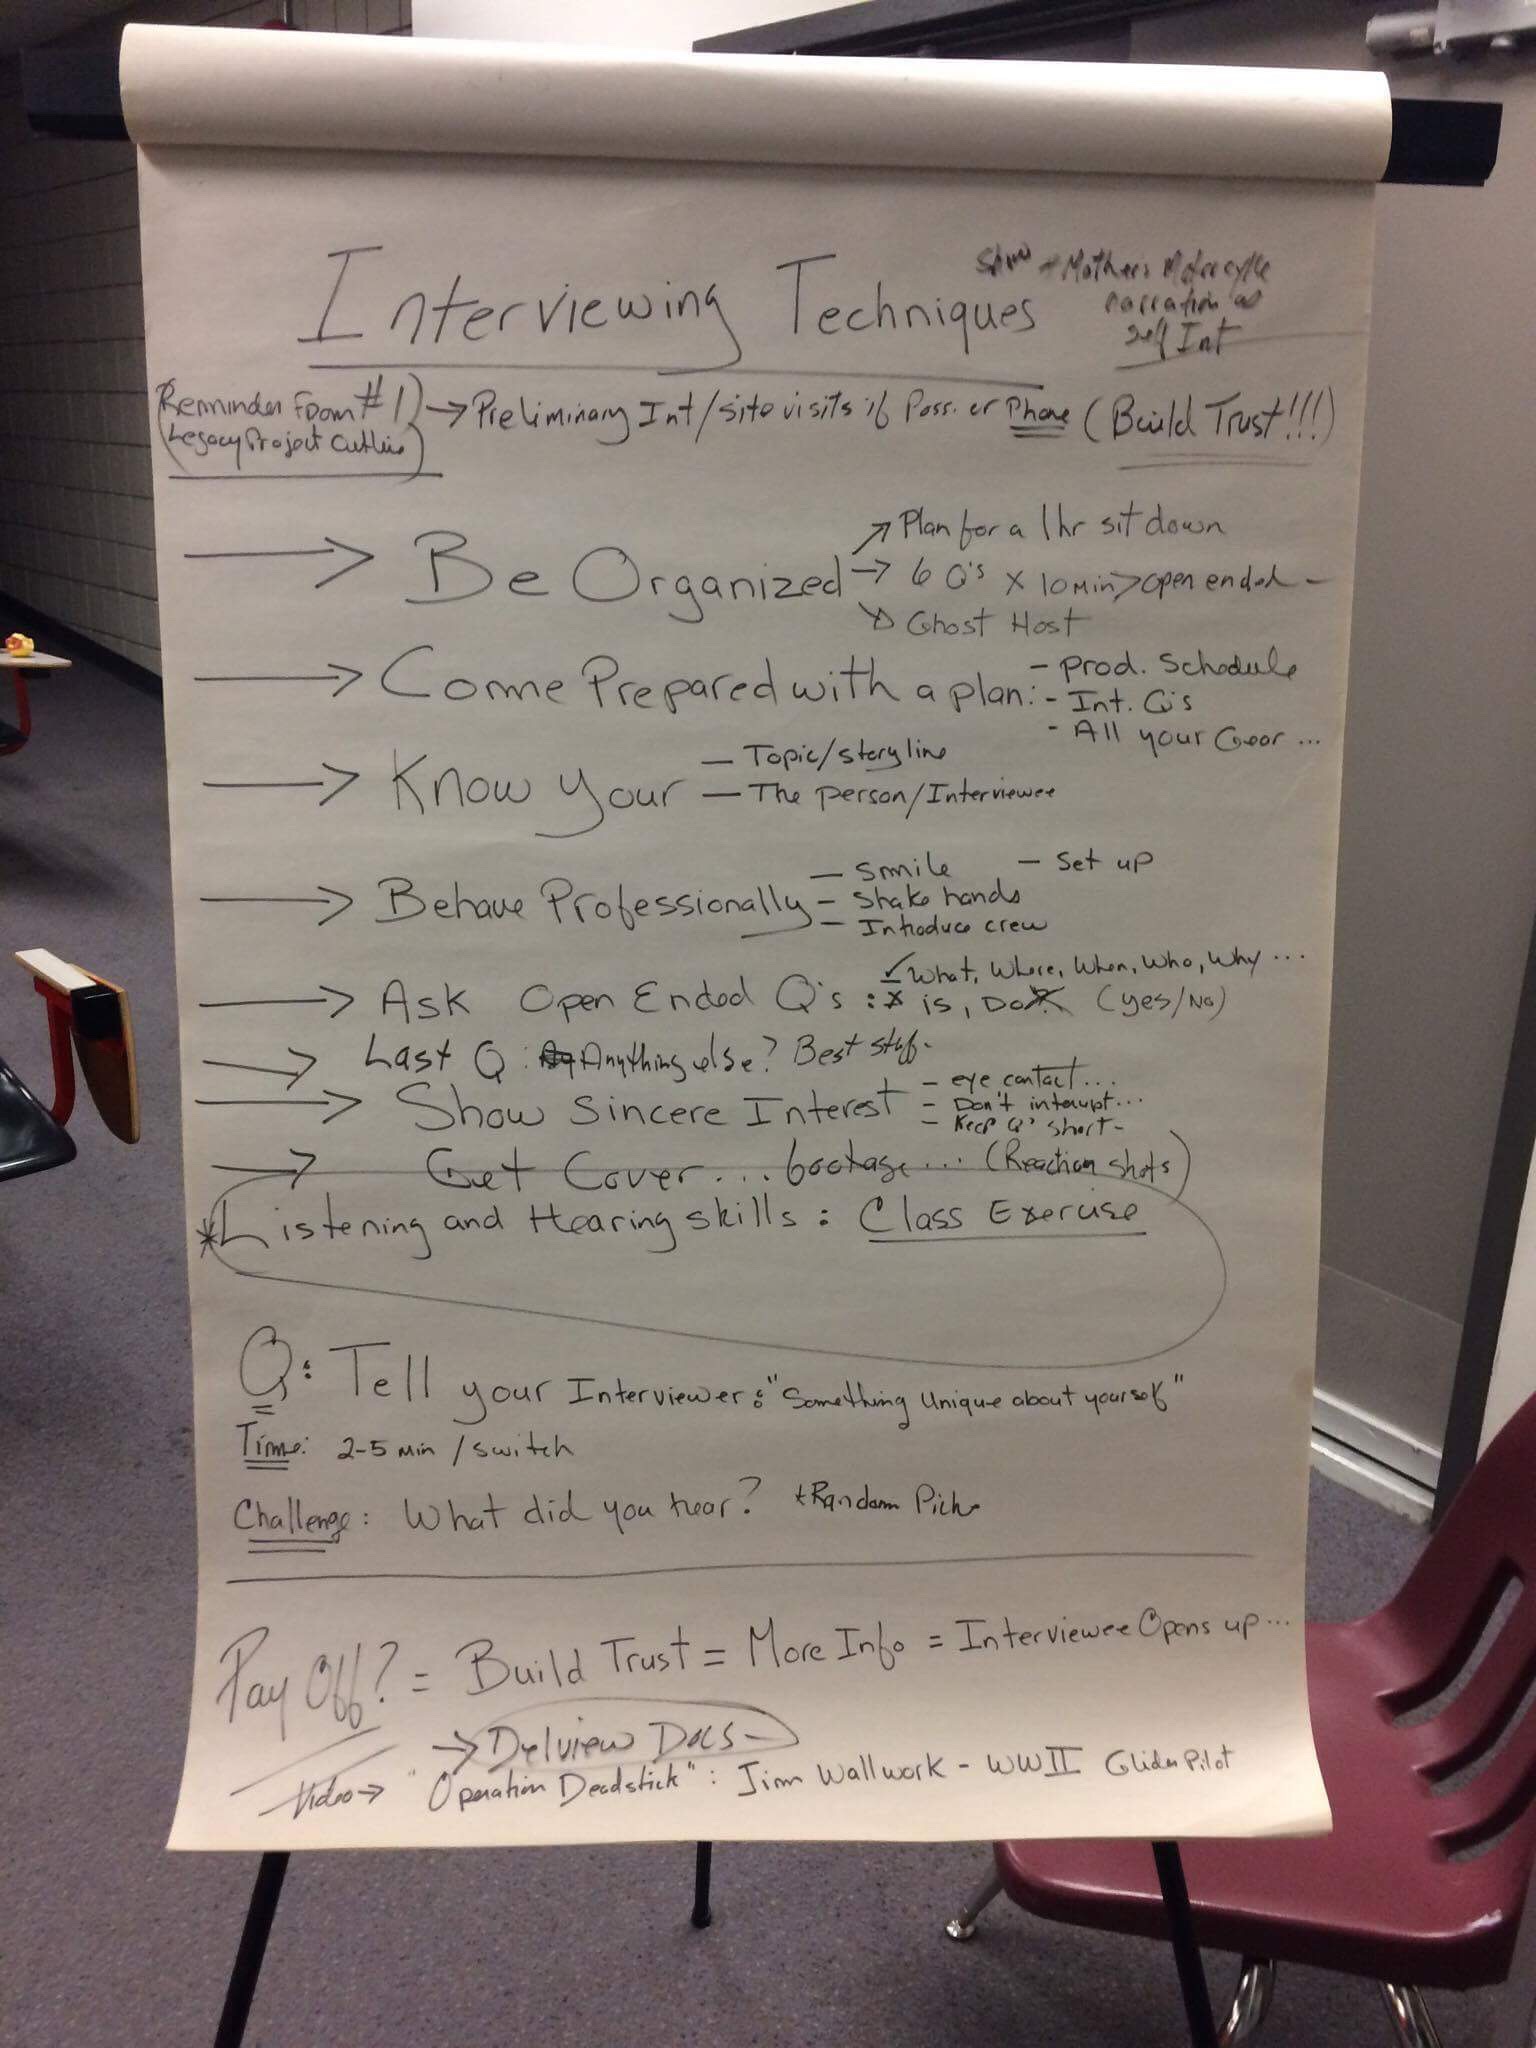 Interviewing Techniques
Show Mother's Motorcycle
narration as
self Int
(Reminder From #1) → Preliminary Int/site visits if Poss. or Phone (Build Trust!!!)
(Legacy Project Outline)
→ Be Organized
↗ Plan for a 1 hr sit down
→ 6 Q's x 10 min > open ended -
↘ Ghost Host
→ Come Prepared with a plan:
- Prod. Schedule
- Int. Q's
- All your Gear ...
→ Know your
- Topic/storyline
- The person/Interviewee
→ Behave Professionally
- Smile - Set up
- Shake hands
- Introduce crew
→ Ask Open Ended Q's :
✓ What, Where, When, Who, Why ...
x is, Do (Yes/No)
→ Last Q : Anything else? Best stuff-
→ Show Sincere Interest
- eye contact...
- Don't interupt...
- Keep Q's short-
→ Get Cover... footage... (Reaction shots)
*Listening and Hearing skills : Class Exercise
Q: Tell your Interviewer: "Something Unique about yourself"
Time: 2-5 min / switch
Challenge: What did you hear? Random Pick
Pay Off? = Build Trust = More Info = Interviewee Opens up...
→ Delview Docs-
Video → "Operation Deadstick" : Jim Wallwork - WWII Glider Pilot